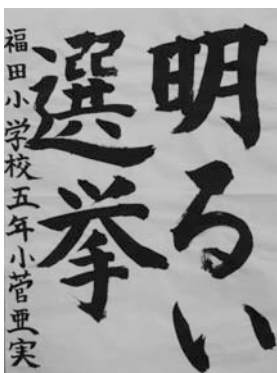 明るい
選挙
福田小学校五年小菅亜実